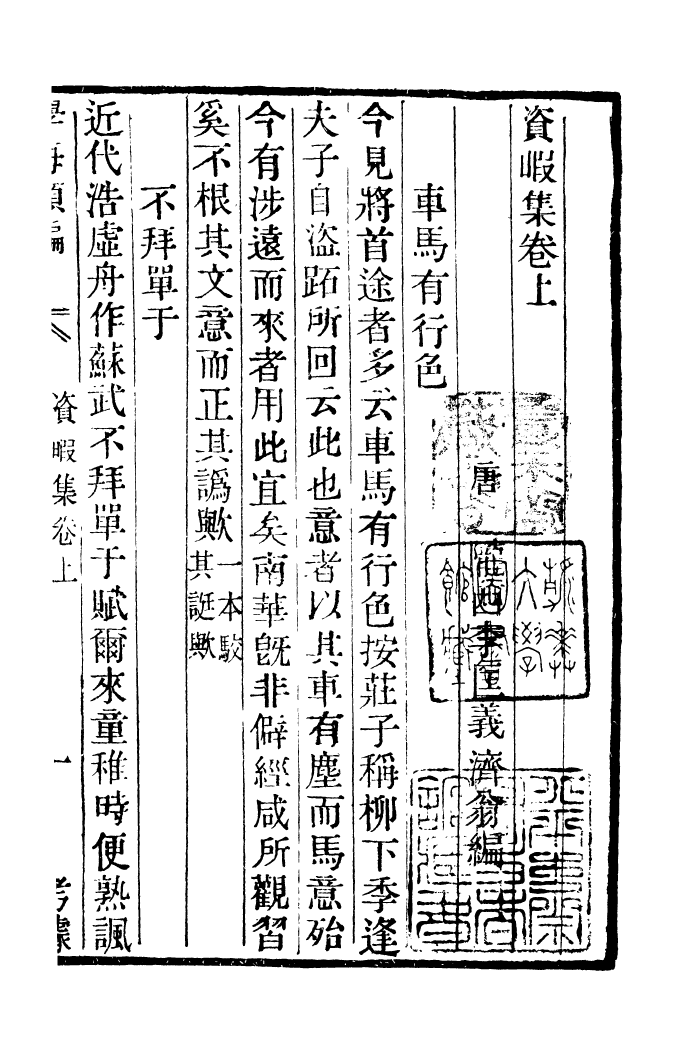 資暇集卷上
唐 隴西李匡義濟翁編
車馬有行色
今見將首途者多云車馬有行色按莊子稱柳下季逢
夫子自盜跖所回云此也意者以其車有塵而馬意殆
今有涉遠而來者用此宜矣南華旣非僻經咸所觀習
奚不根其文意而正其譌歟一本駮其誕歟
不拜單于
近代浩虛舟作蘇武不拜單于賦爾來童稚時便熟諷
學海類編 資暇集卷上 一 考據